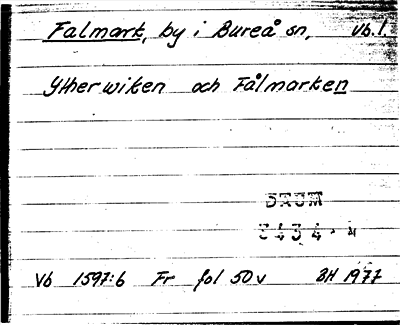 Falmark, by i Bureå sn, Vb.l.
Ytherwiken och Fålmarken
DAUM
3434.
Vb 1597:6 Fr fol 50 v BH 1977